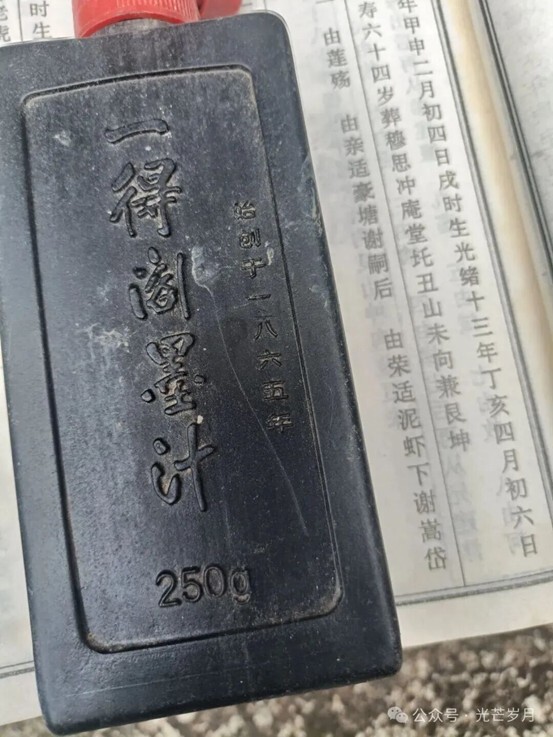 一得阁墨汁
始创于一八六五年
250g
时生
年甲申二月初四日戌时生光绪十三年丁亥四月初六日
寿六十四岁葬穆思冲庵堂圫丑山未向兼艮坤
由莲殇 由亲适豪塘谢嗣后 由荣适泥虾下谢嵩岱
公众号·光芒岁月